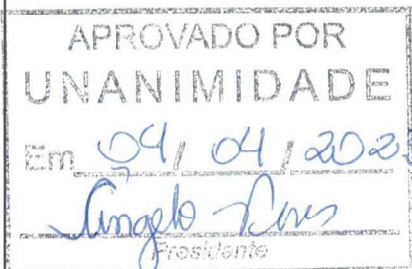 APROVADO POR
UNANIMIDADE
Em 04/04/202
Angelo
Presidente